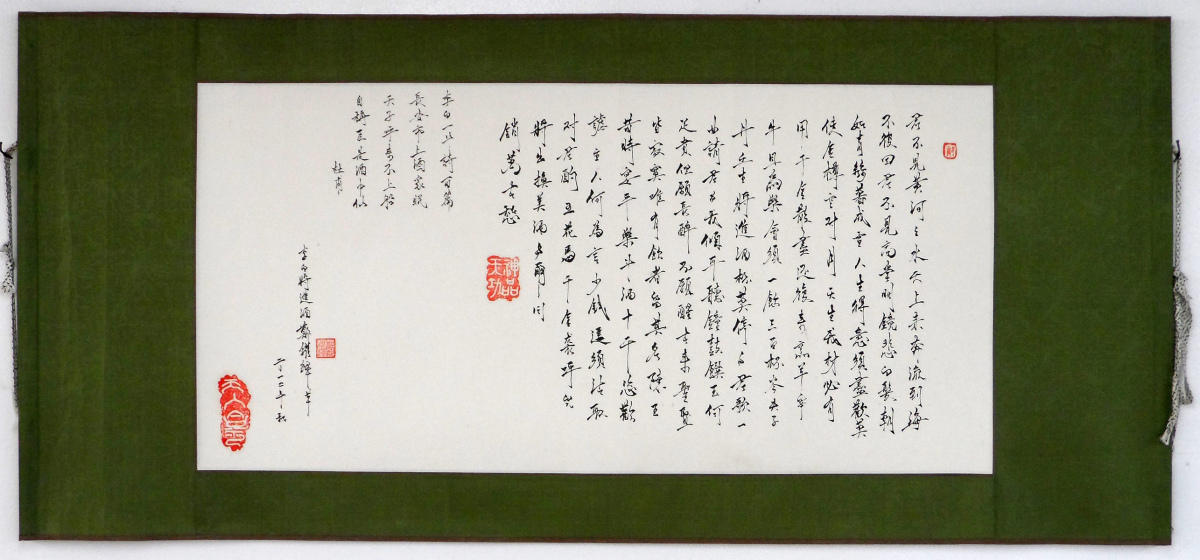 君不見黃河之水天上来奔流到海
不復回君不見高堂明鏡悲白髮朝
如青絲暮成雪人生得意須盡歡莫
使金樽空对月天生我材必有
用千金散盡還復来烹羊宰
牛且為樂會須一飲三百杯岑夫子
丹丘生將進酒杯莫停与君歌一
曲請君为我傾耳聽鐘鼓饌玉何
足貴但願長醉不願醒古来聖賢
皆寂寞唯有飲者留其名陳王
昔時宴平樂斗酒十千恣歡
謔主人何為言少錢逕須沽取
对君酌五花馬千金裘呼兒
將出換美酒与爾同
銷萬古愁
神品
天功
李白一斗詩百篇
長安市上酒家眠
天子呼来不上船
自稱臣是酒中仙
杜甫
李白將進酒
二〇一二年秋
天人合一